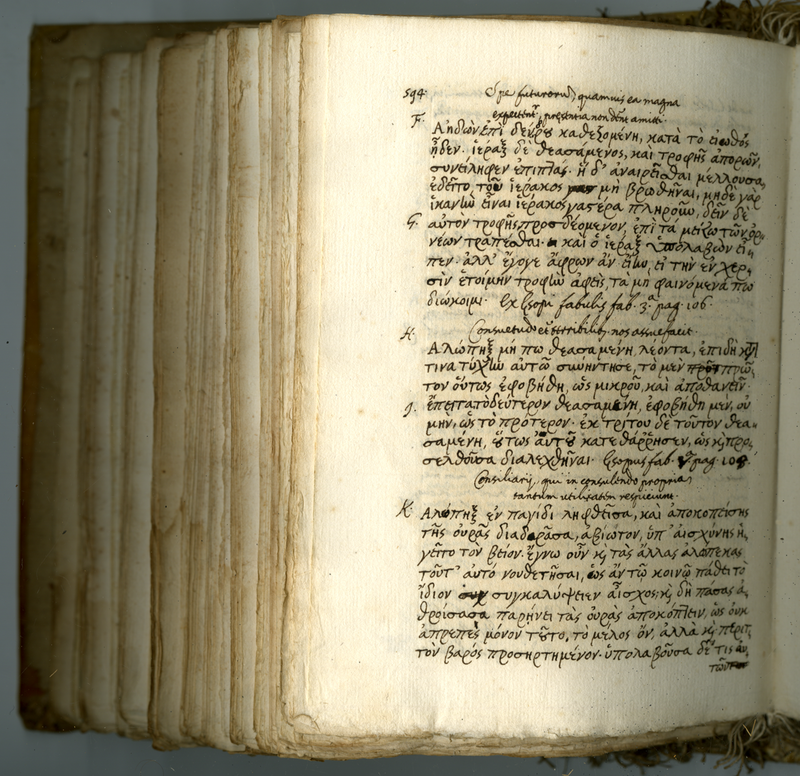 594.
Spe futurorum, quamuis ea magna
expectentr, presentia non dent amitti.
F. Ἀηδὼν ἐπὶ δένδρου καθεζομένη, κατὰ τὸ εἰωθὸς
ᾖδεν. ἱέραξ δὲ θεασάμενος, καὶ τροφῆς ἀπορῶν,
συνείληφεν ἐπιπτάς. ἡ δ' ἀναιρεῖσθαι μέλλουσα,
ἐδεῖτο τοῦ ἱέρακος μὴ βρωθῆναι, μηδὲ γὰρ
ἱκανὴν εἶναι ἱέρακος γαστέρα πληροῦν, δεῖν δὲ
G. αὐτὸν τροφῆς προσδεόμενον, ἐπὶ τὰ μείζω τῶν ὀρ-
νέων τραπέσθαι. καὶ ὁ ἱέραξ ὑπολαβὼν εἶ-
πεν. ἀλλ' ἔγωγε ἄφρων ἂν εἴην, εἰ τὴν ἐν χερ-
σὶν ἑτοίμην τροφὴν ἀφεὶς, τὰ μὴ φαινόμενά πω
διώκοιμι. Ex Esopi fabulis fab. 3.a pag. 106.
Consuetudo et terribilibus nos assuefacit.
H. Ἀλώπηξ μή πω θεασαμένη λέοντα, ἐπειδὴ κατά
τινα τύχην αὐτῷ συνήντησε, τὸ μὲν πρῶ-
τον οὕτως ἐφοβήθη, ὡς μικροῦ, καὶ ἀποθανεῖν.
J. ἔπειτα τὸ δεύτερον θεασαμένη, ἐφοβήθη μὲν, οὐ
μὴν, ὡς τὸ πρότερον. ἐκ τρίτου δὲ τοῦτον θεα-
σαμένη, οὕτως αὐτοῦ κατεθάρρησεν, ὡς καὶ προ-
σελθοῦσα διαλεχθῆναι. Esopus fab. pag. 108.
Consiliarij, qui in consulendo propriam
tantum utilitatem respiciunt.
K. Ἀλώπηξ ἐν παγίδι ληφθεῖσα, καὶ ἀποκοπείσης
τῆς οὐρᾶς διαδρᾶσα, ἀβίωτον, ὑπ' αἰσχύνης ἡ-
γεῖτο τὸν βίον. ἔγνω οὖν καὶ τὰς ἄλλας ἀλώπεκας
τοῦτ' αὐτὸ νουθετῆσαι, ὡς ἂν τῷ κοινῷ πάθει τὸ
ἴδιον συγκαλύψειεν αἶσχος. καὶ δὴ πάσας ἀ-
θροίσασα παρῄνει τὰς οὐρὰς ἀποκόπτειν, ὡς οὐκ
ἀπρεπὲς μόνον τοῦτο, τὸ μέλος ὂν, ἀλλὰ καὶ περιτ-
τὸν βάρος προσηρτημένον. ὑπολαβοῦσα δέ τις αὐ-
τῶν